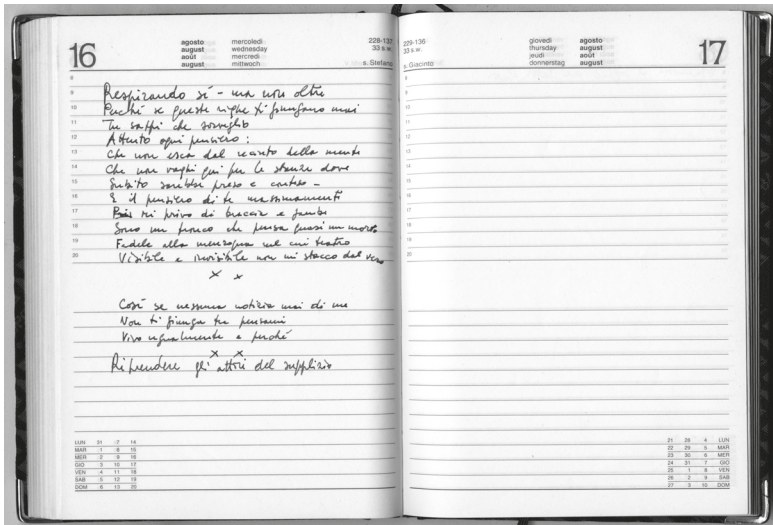 16
agosto
august
août
august
mercoledì
wednesday
mercredi
mittwoch
228-137
33 s.w.
s. Stefano
8
9 Respirando sé - ma non oltre
10 Perché se queste righe ti giungano mai
11 Tu sappi che sorveglio
12 Attento ogni pensiero:
13 Che non esca dal recinto della mente
14 Che non vaghi qui per le stanze dove
15 Subito sarebbe preso e conteso -
16 E il pensiero di te massimamenti
17 mi privo di braccia e gambe
18 Sono un tronco che pensa quasi un morto
19 Fedele alla menzogna nel cui teatro
20 Visibile e invisibile non mi stacco dal vero
x x
Così se nessuna notizia mai di me
Non ti giunga tu pensami
Vivo ugualmente e perché
x x
Riprendere gli attori del supplizio
LUN 31 7 14
MAR 1 8 15
MER 2 9 16
GIO 3 10 17
VEN 4 11 18
SAB 5 12 19
DOM 6 13 20
229-136
33 s.w.
s. Giacinto
giovedì
thursday
jeudi
donnerstag
agosto
august
août
august
17
8
9
10
11
12
13
14
15
16
17
18
19
20
21 28 4 LUN
22 29 5 MAR
23 30 6 MER
24 31 7 GIO
25 1 8 VEN
26 2 9 SAB
27 3 10 DOM